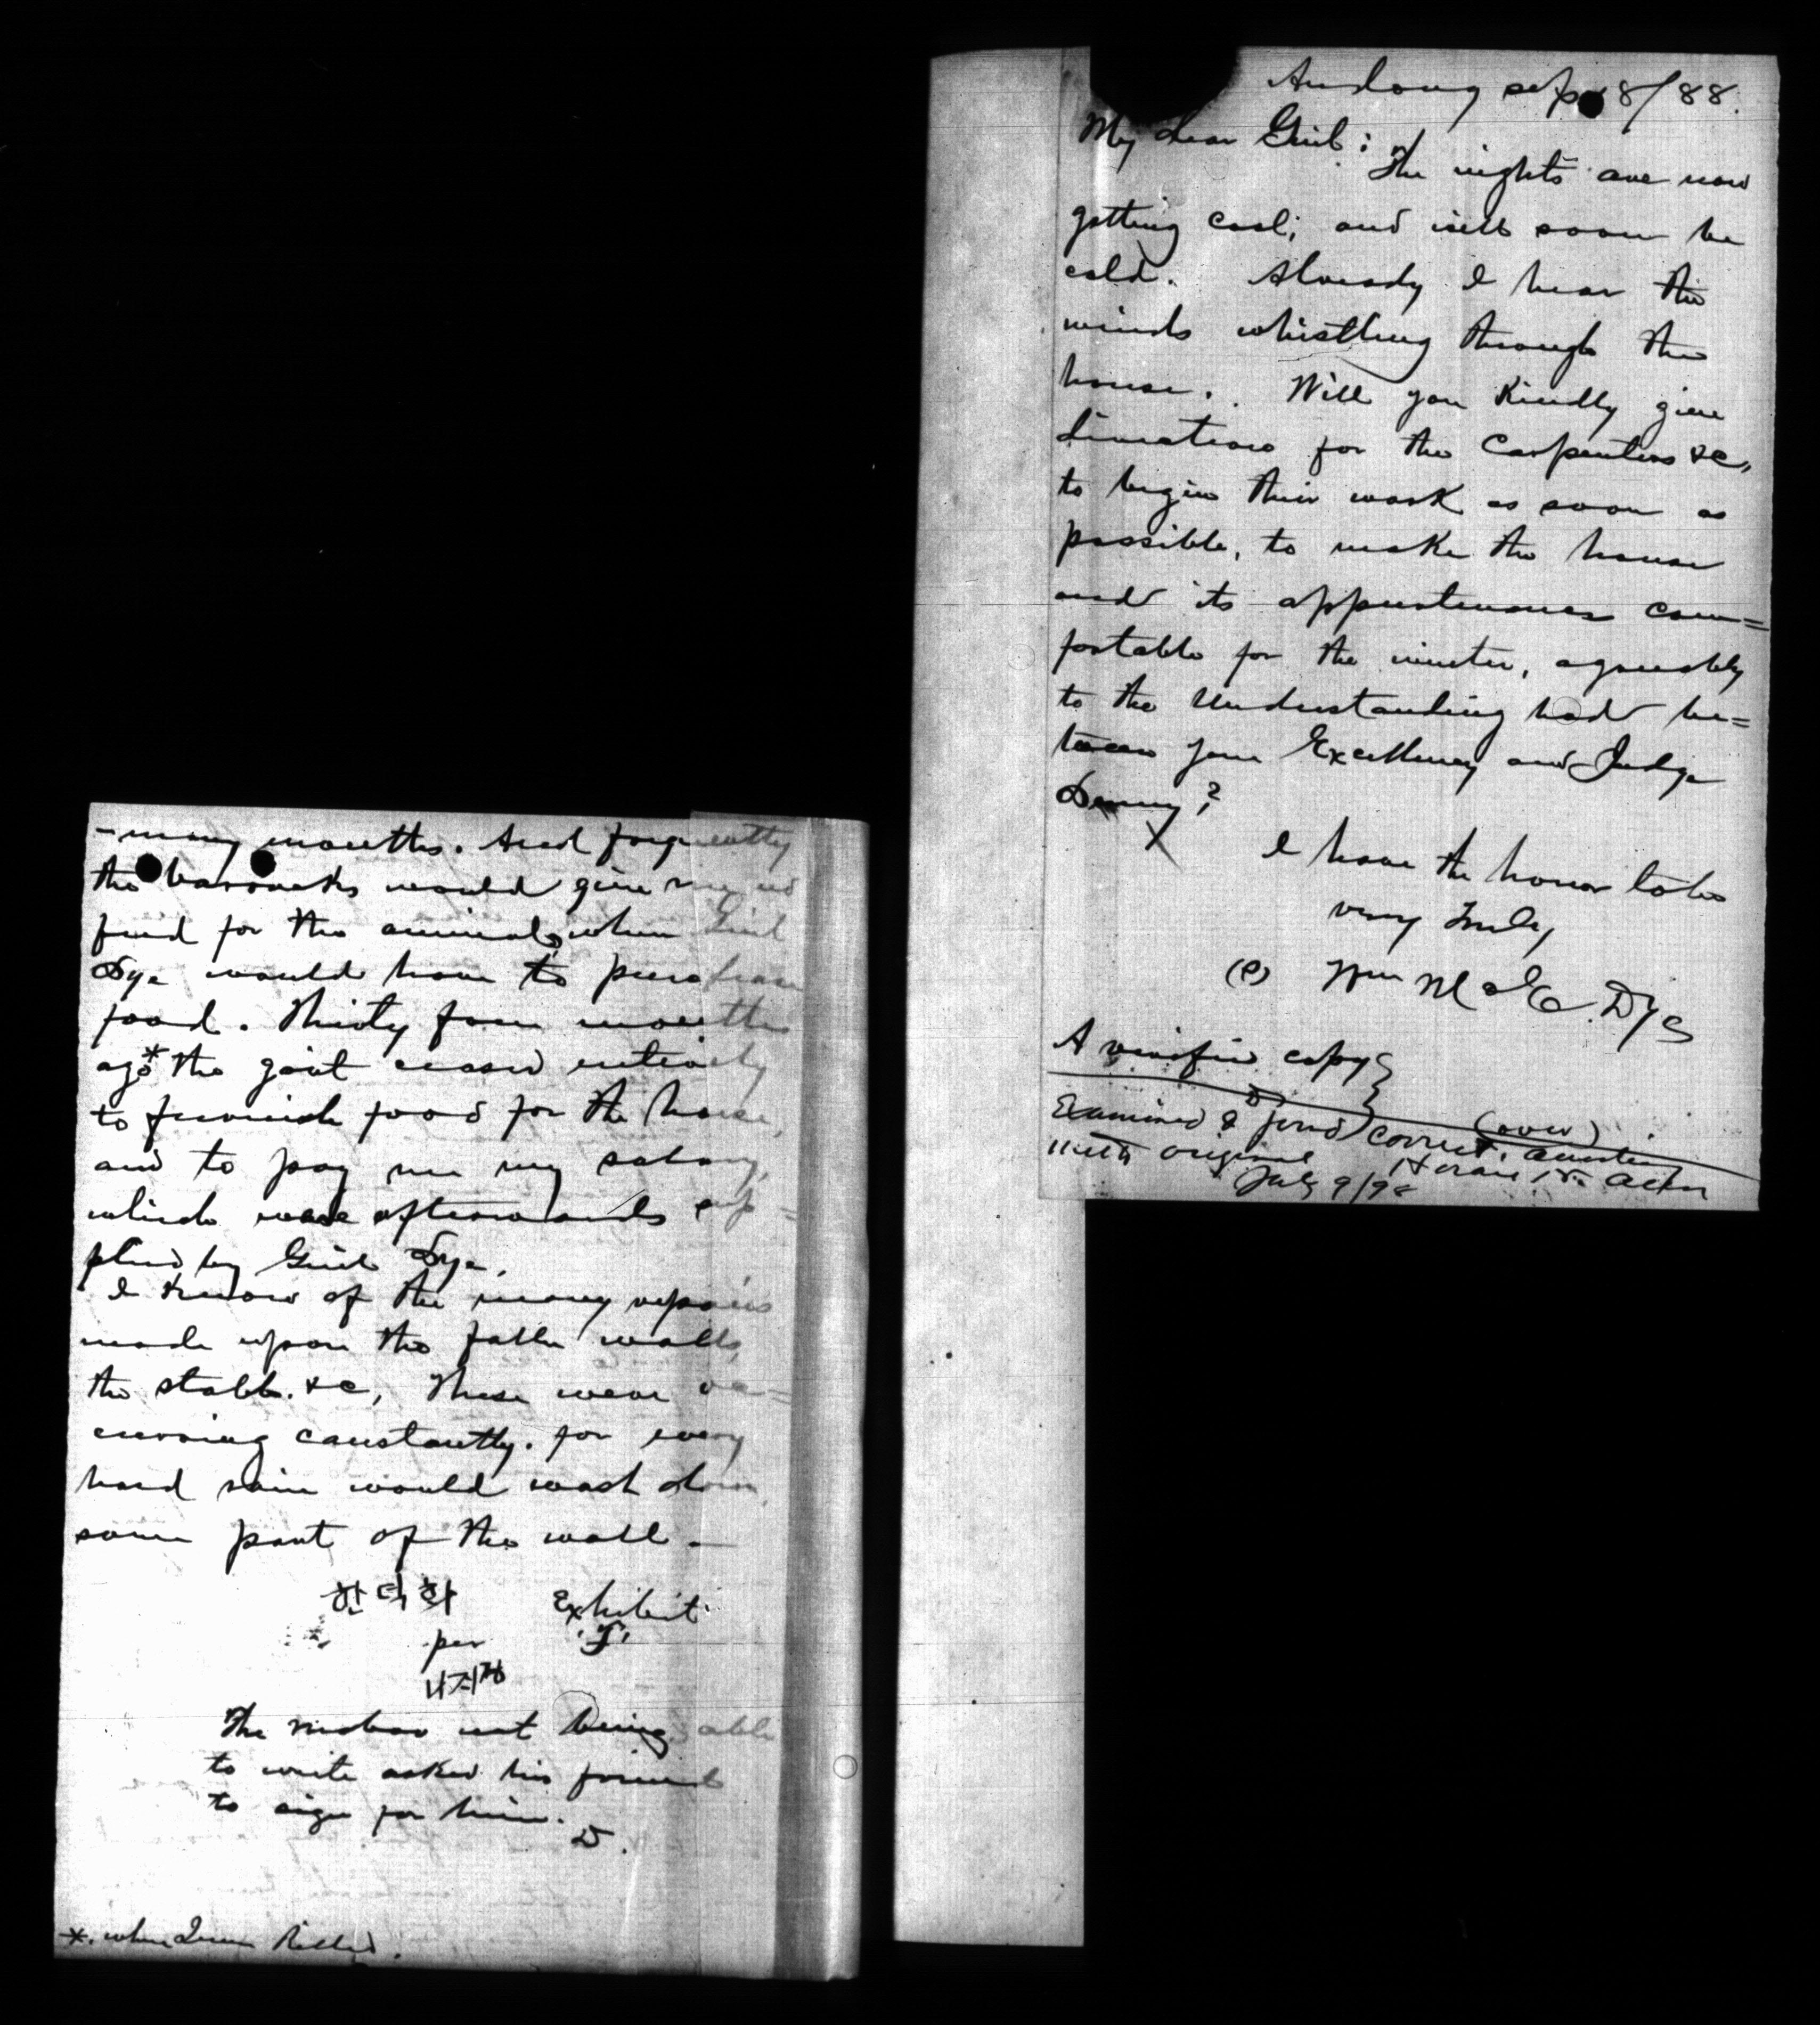 - many months. And frequently
the barracks would give me no
feed for the animal, when Genl
Dye would have to purchase
food. Thirty four months
ago* the govt ceased entirely
to furnish food for the horse,
and to pay me my salary,
which were afterwards sup=
plied by Genl Dye.
I know of the many repairs
made upon the walls,
the stable &c, These were re=
curring constantly. for every
hard rain would wash down
some part of the wall -
한덕화 Exhibit
per "J"
The not being able
to write asked his friend
to sign for him.
D.
*. when Queen Killed.
Andong sep 8/88.
My dear Genl: The nights are now
getting cool; and will soon be
cold. Already I hear the
winds whistling through the
house. Will you Kindly give
directions for the Carpenters &c,
to begin their work as soon as
possible, to make the house
and its appurtenances com=
fortable for the winter, agreeably
to the Understanding had be=
tween your Excellency and Judge
Denny?
X
I have the honor to be
very truly,
(S) Wm McE. Dye
A copy
(over)
Examined & found correct,
with original Horace N. Allen
July 9/98